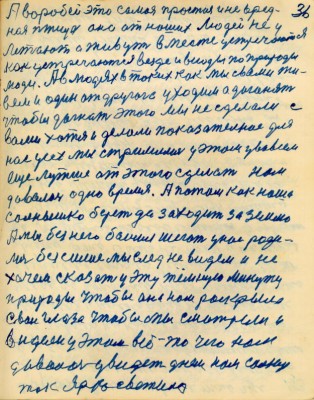 36
А воробей это самая простая и не вред-
ная птица она от наших людей не у
летают а живут вместе встречаются
как встречаются везде и всюду по природы
люди. А в людях в таких как мы с вами жи-
вем и один от другого уходим а догонять
чтобы догнать этого мы не сделали с
вами хотя и делали показательное для
нас всех мы стремимся у этом у всем
еще лутше от этого сделать нам
давалось одно время. А потом как наше
солнышко берет да заходит за землю
А мы без него боимся шегот у нас роди-
лся без силие мы след не видем и не
хочем сказать у эту тёмную минуту
природы чтобы она нам раскрыла
свои глаза чтобы мы смотрели и
видели у этом всё-то чего нам
давалось увидеть днем нам солнце
так ярко светило